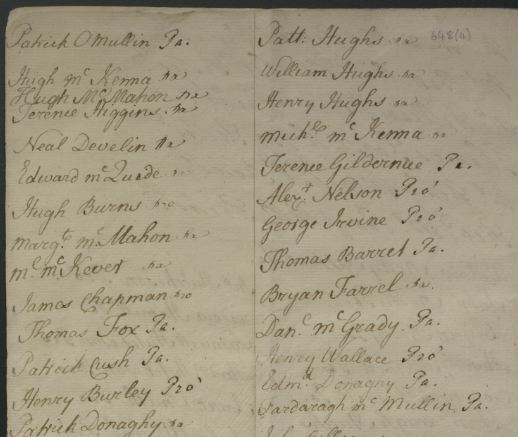 Patrick O Mullin Pa.
Hugh mc Kenna Pa
Hugh Mc Mahon Pa
Terence Higgins Pa
Neal Develin Pa
Edward mc Quade
Hugh Burns Pro
Margt. mc Mahon Pa
mc Kever Pa
James Chapman Pro
Thomas Fox Pa.
Patrick Cush Pa.
Henry Burley Pro
Patrick Donaghy Pa
648(a)
Patt: Hughs Pa
William Hughs Pa
Henry Hughs Pa
Michl. mc Kenna Pa
Terence Gildernue Pa.
Alexr. Nelson Pro
George Irvine Pro
Thomas Barret Pa.
Bryan Farrel Pa.
Danl. mc Grady. Pa.
Henry Wallace Pro
Edmd. Donaghy Pa.
Fardaragh mc Mullin Pa.